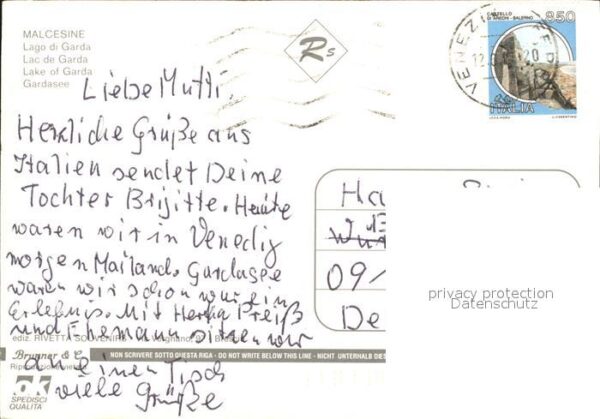 MALCESINE
Lago di Garda
Lac de Garda
Lake of Garda
Gardasee
Rs
VENEZIA
CASTELLO
DI ARECHI - SALERNO
850
ITALIA
Liebe Mutti.
Herzliche Grüße aus
Italien sendet Deine
Tochter Brigitte. Heute
waren wir in Venedig
morgen Mailand. Gardasee
waren wir schon war ein
Erlebnis. Mit Hertha Preiß
und Ehemann sitzen wir
an einen Tisch
viele Grüße
Ha
09/
De
privacy protection
Datenschutz
ediz. RIVETTA SOUVENIRS
Brunner & C.
NON SCRIVERE SOTTO QUESTA RIGA - DO NOT WRITE BELOW THIS LINE - NICHT UNTERHALB DIES
ok
SPEDISCI
QUALITÀ